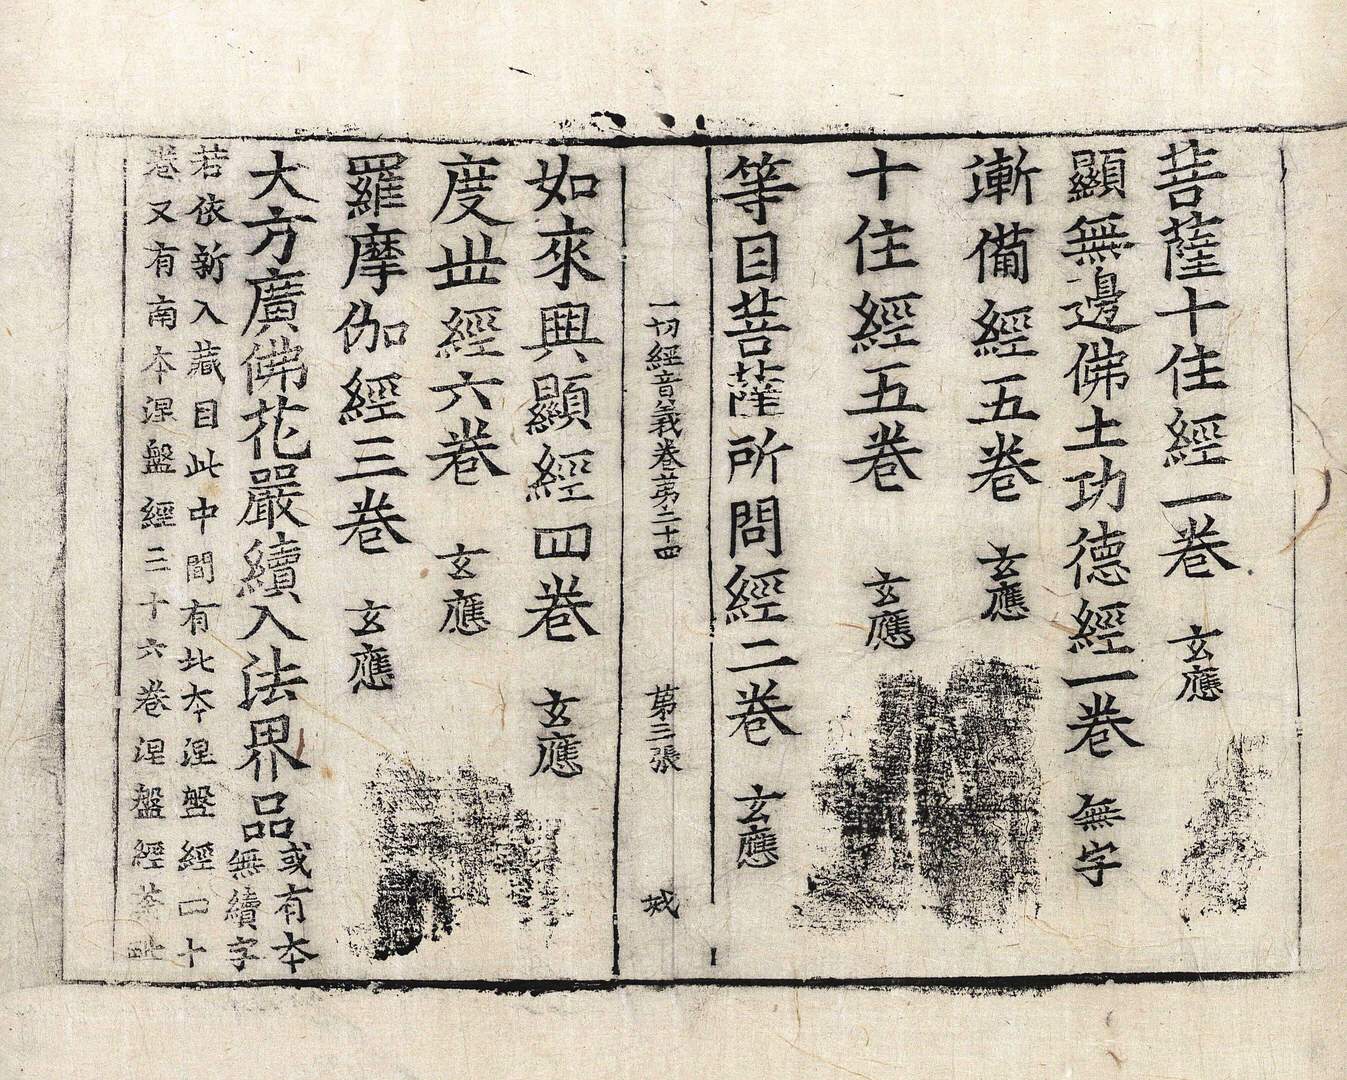 菩薩十住經一卷 玄應
顯無邊佛土功德經一卷 無字
漸備經五卷 玄應
十住經五卷 玄應
等目菩薩所問經二卷 玄應
一切經音義卷第二十四 第三張 城
如來興顯經四卷 玄應
度世經六卷 玄應
羅摩伽經三卷 玄應
大方廣佛花嚴續入法界品 或有本
無續字
若依新入藏目此中間有北本涅盤經四十
卷又有南本涅盤經三十六卷涅盤經荼毗